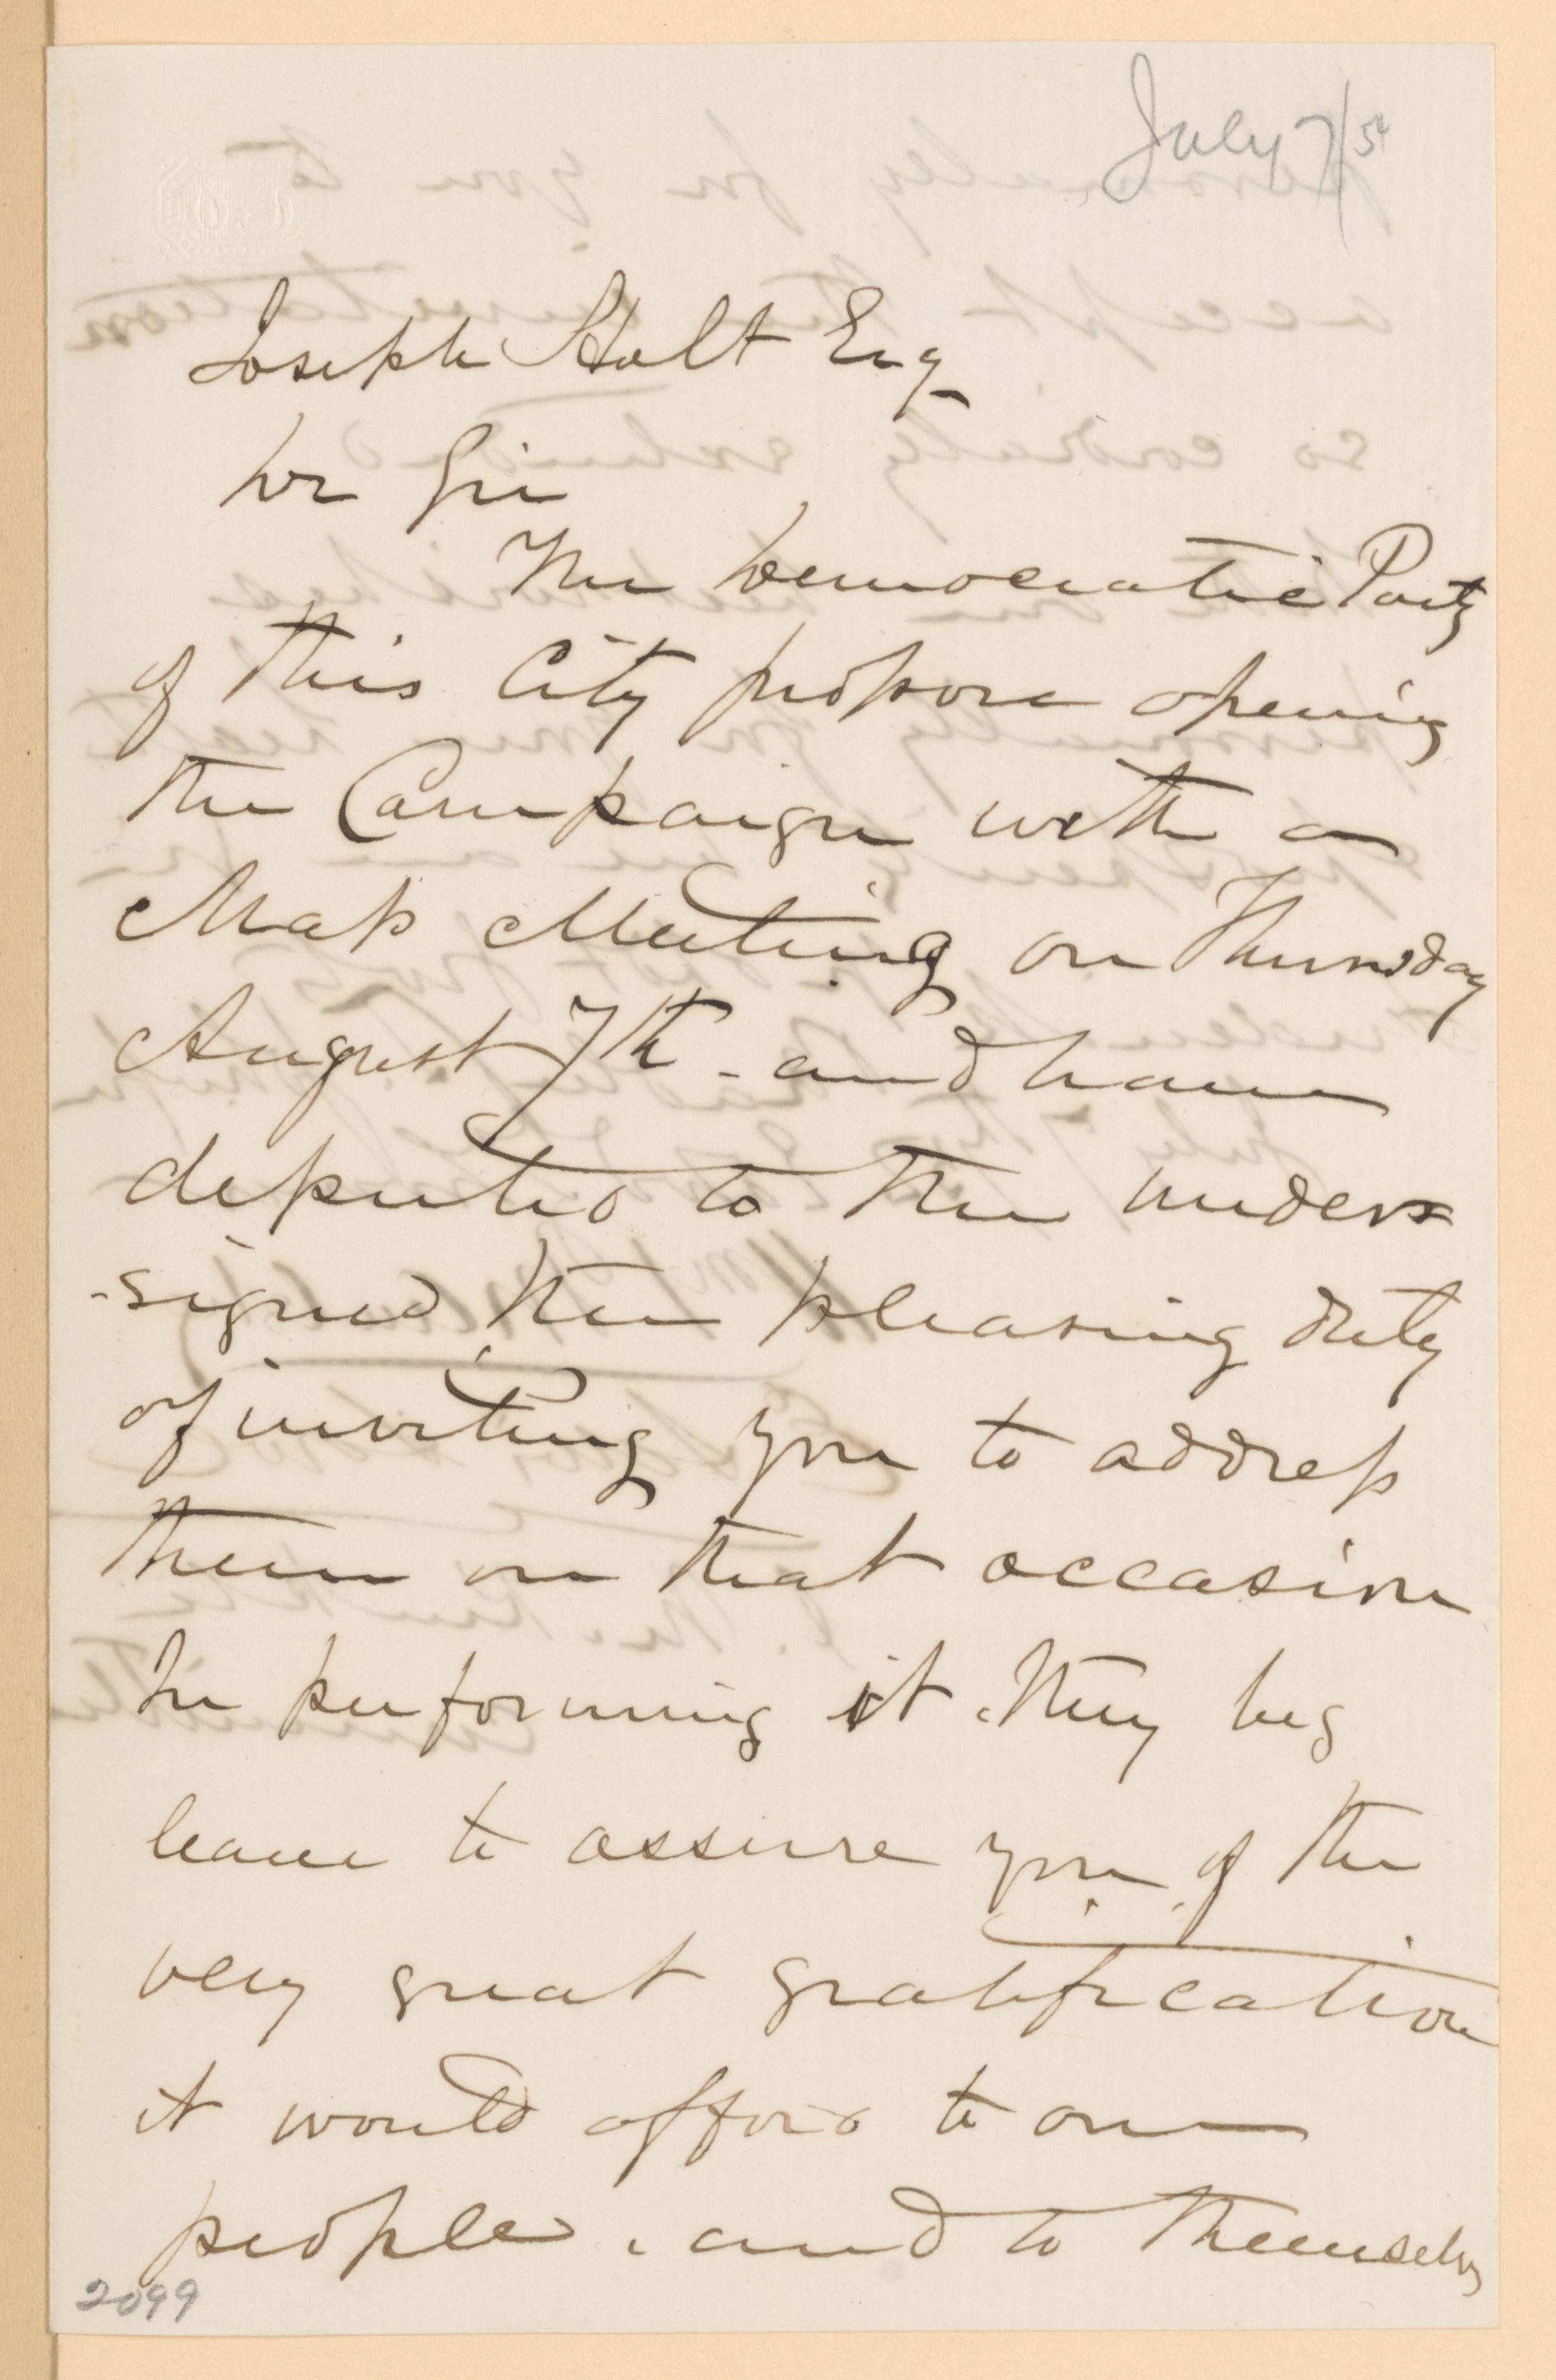 July 7/5
Joseph Holt Esq
Dr Sir
The Democratic Party
of this City propose opening
the Campaign with a
Mass Meeting on Thursday
August 7th - and have
deputed to the under
-signed the pleasing duty
of inviting you to address
them on that occasion
In performing it they beg
leave to assure you of the
very great gratification
it would afford to our
people, and to themselves
2099